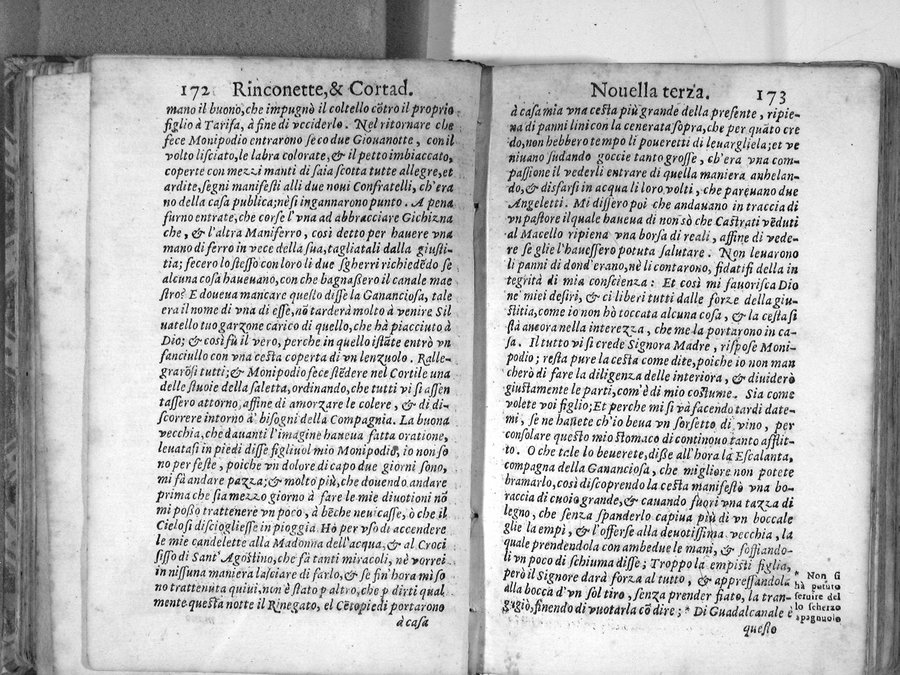 172 Rinconette, & Cortad.
mano il buono, che impugnò il coltello cõtro il proprio
figlio à Tarifa, à fine di vcciderlo. Nel ritornare che
fece Monipodio entrarono seco due Giouanotte, con il
volto lisciato, le labra colorate, & il petto imbiaccato,
coperte con mezzi manti di saia scotta tutte allegre, et
ardite, segni manifesti alli due noui Confratelli, ch'era
no della casa publica; nè si ingannarono punto. A pena
furno entrate, che corse l'vna ad abbracciare Gichizna
che, & l'altra Maniferro, così detto per hauere vna
mano di ferro in vece della sua, tagliatali dalla giusti-
tia; fecero lo stesso con loro li due sgherri richiedẽdo se
alcuna cosa haueuano, con che bagnassero il canale mae
stro? E doueua mancare questo disse la Gananciosa, tale
era il nome di vna di esse, nõ tarderà molto à venire Sil
uatello tuo garzone carico di quello, che hà piacciuto à
Dio; & così fù il vero, perche in quello istãte entrò vn
fanciullo con vna cesta coperta di vn lenzuolo. Ralle-
grarõsi tutti; & Monipodio fece stẽdere nel Cortile una
delle stuoie della saletta, ordinando, che tutti vi si assen
tassero attorno, affine di amorzare le colere, & di di-
scorrere intorno à' bisogni della Compagnia. La buona
vecchia, che dauanti l'imagine haueua fatta oratione,
leuatasi in piedi disse figliuol mio Monipodio, io non so
no per feste, poiche vn dolore di capo due giorni sono,
mi fà andare pazza; & molto più, che douendo andare
prima che sia mezzo giorno à fare le mie diuotioni nõ
mi posso trattenere vn poco, à bẽche neuicasse, ò che il
Cielo si disciogliesse in pioggia Hò per vso di accendere
le mie candelette alla Madonna dell'acqua, & al Croci
sisso di Sant' Agostino, che fà tanti miracoli, nè vorrei
in nissuna maniera lasciare di farlo, & se fin' hora mi so
no trattenuta quiui, non è stato p altro, che p dirti qual
mente questa notte il Rinegato, el Cẽtopiedi portarono
à casa
Nouella terza. 173
à casa mia vna cesta più grande della presente, ripie-
na di panni lini con la cenerata sopra, che per quãto cre
do, non hebbero tempo li poueretti di leuargliela; et ve
niuano sudando goccie tanto grosse, ch'era vna com-
passione il vederli entrare di quella maniera anhelan-
do, & disfarsi in acqua li loro volti, che pareuano due
Angeletti. Mi dissero poi che andauano in traccia di
vn pastore il quale haueua di non sò che Castrati vẽduti
al Macello ripiena vna borsa di reali, affine di vede-
re se glie l'hauessero potuta salutare. Non leuarono
li panni di dond'erano, nè li contarono, fidatisi della in
tegrità di mia conscienza: Et così mi fauorisca Dio
ne' miei desiri, & ci liberi tutti dalle forze della giu-
stitia, come io non hò toccata alcuna cosa, & la cesta si
stà ancora nella interezza, che me la portarono in ca-
sa. Il tutto vi si crede Signora Madre, rispose Moni-
podio; resta pure la cesta come dite, poiche io non man
cherò di fare la diligenza delle interiora, & diuiderò
giustamente le parti, com'è di mio costume. Sia come
volete voi figlio; Et perche mi si và facendo tardi date-
mi, se ne hauete ch'io beua vn sorsetto di vino, per
consolare questo mio stomaco di continouo tanto afflit-
to. O che tale lo beuerete, disse all'hora la Escalanta,
compagna della Gananciosa, che migliore non potete
bramarlo, così discoprendo la cesta manifestò vna bo-
raccia di cuoio grande, & cauando fuori vna tazza di
legno, che senza spanderlo capiua più di vn boccale
glie la empì, & l'offerse alla deuotissima vecchia, la
quale prendendola con ambedue le mani, & soffiando-
li vn poco di schiuma disse; Troppo la empisti figlia,
però il Signore darà forza al tutto, & appressandola
alla bocca d'vn sol tiro, senza prender fiato, la tran-
gugiò, finendo di vuotarla cõ dire; * Di Guadalcanale è
* Non si
hà potuto
seruire del
lo scherzo
spagnuolo
questo